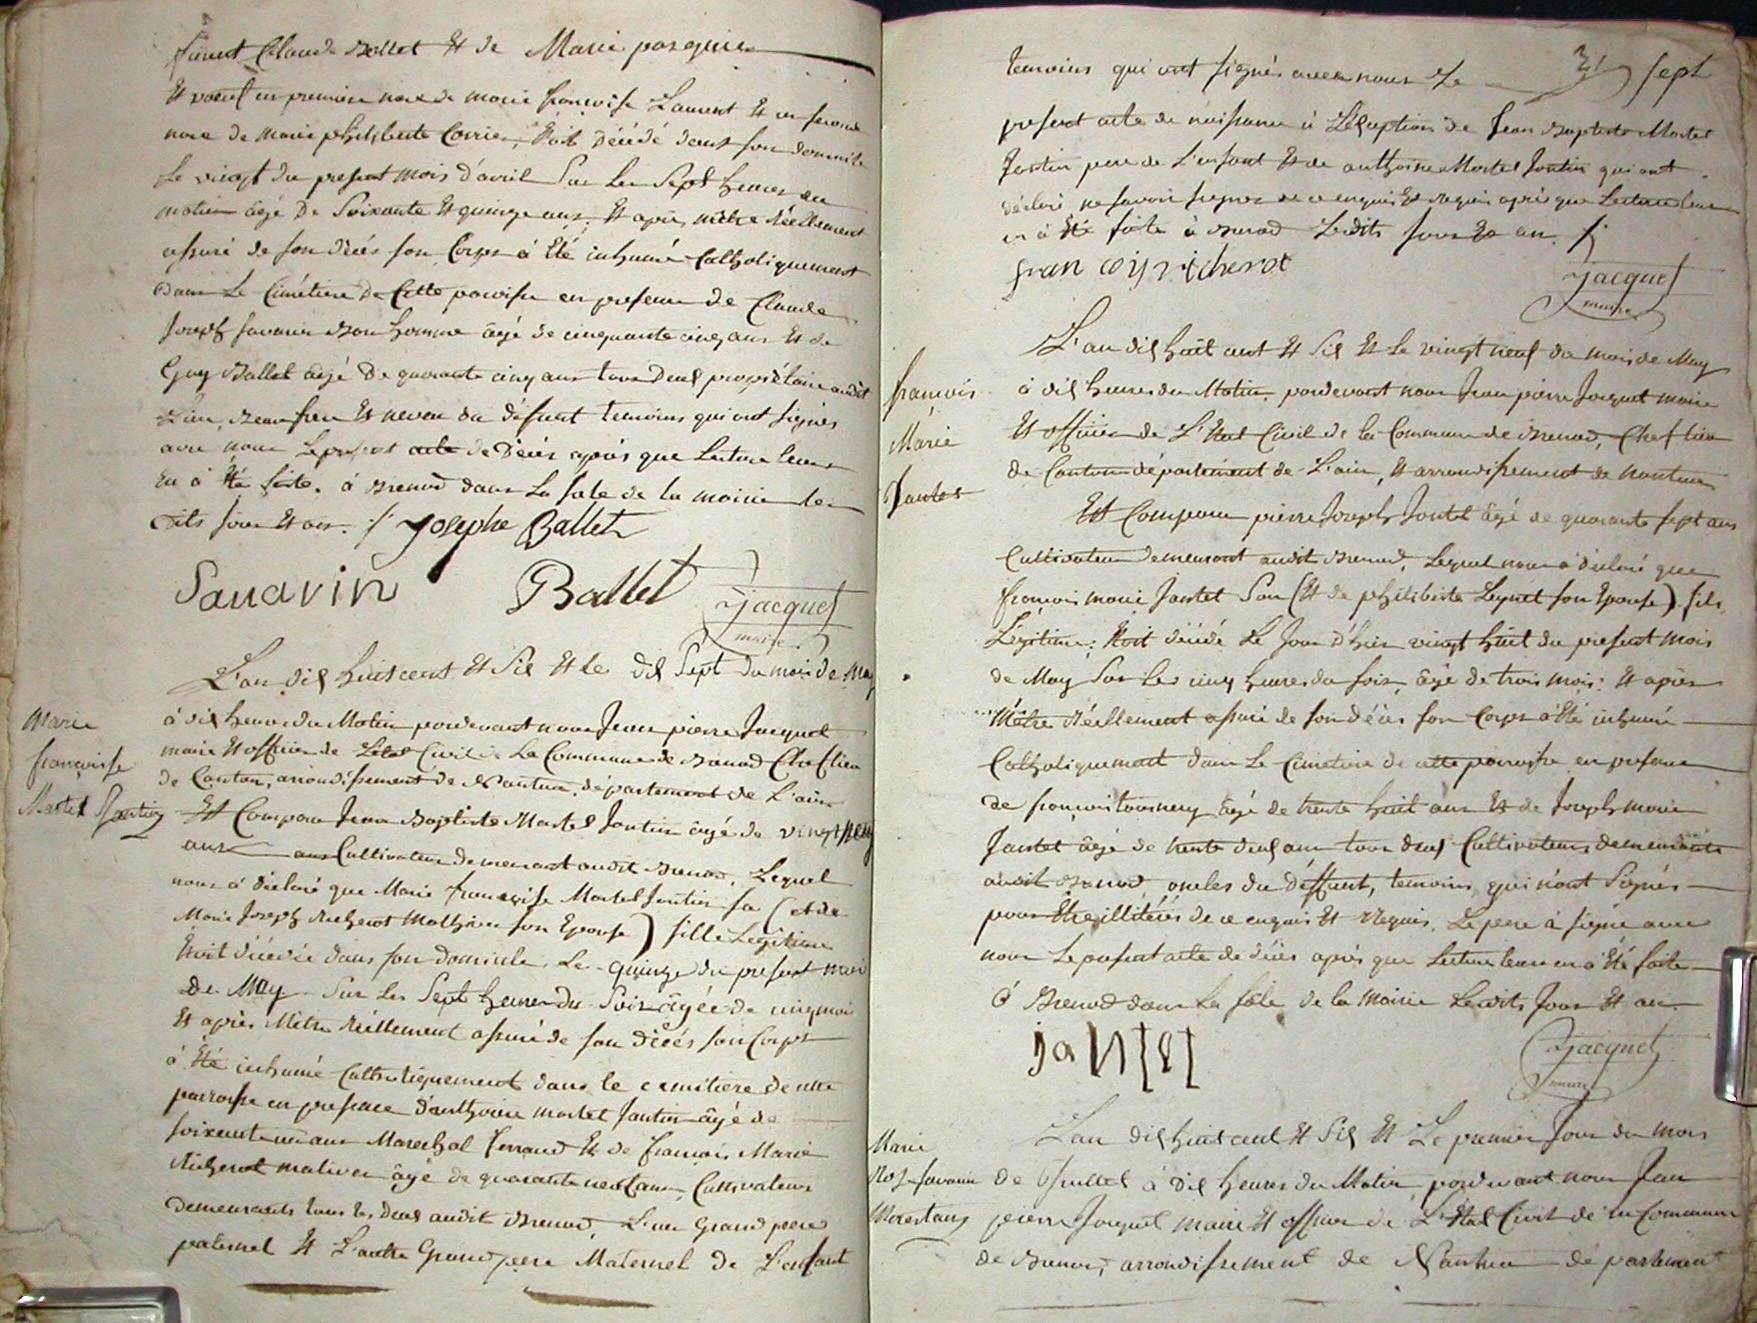 feuent Claude Ballet Et de Marie pasquier
Et voeuf en premiere noce de marie françoise Laurent Et en seconde
noce de marie philiberte Corrier, Étoit décédé dans son domicile
le vingt du present mois d'avril Sur les Sept heures du
matin âgé De Soixante Et quinze ans. Et après m'être Réellement
assuré de son décés son Corps à Été inhumé Catholiquement
Dans Le Cimétiere De Cette paroisse en presence de Claude
Joseph Savarin Bon homme âgé de cinquante cinq ans Et de
Guy Ballet âgé De quarante cinq ans tous Deux propriétaire audit
Lieu, Beaufrere Et neveu du défunt temoins qui ont signés
avec nous Le present acte de Décés après que Lecture leurs
En à Été faite. à Brenod dans La sale de la mairie les
dits jour Et an. ./. Josephe Ballet
Sauavin Ballet Jacquet
maire
L'an dix huit cent Et Six Et le dix Sept du mois de May
Marie
françoise
Martel Jantin
à dix heures du Matin pardevant nous Jean pierre Jacquet
maire Et officier de L'état Civil de La Commune de Brenod Chef lieu
de Canton, arrondissement de Nantua, département de L'ain
Est Comparu Jean Baptiste Martel Jantin âgé de vingt neuf
ans Cultivateur demeurant audit Brenod, Lequel
nous à déclaré que Marie françoise Martel Jantin sa (et de
Marie Joseph Richerot Mathieu son Epouse) fille Legitime
Étoit décédée dans son Domicile Le quinze du present mois
de May Sur Les Sept heures du Soir âgée de cinq mois
Et après M'être Réellement assuré de son décés son Corps
à Été inhumé Catholiquement dans le cimitiere de cette
paroisse en presence d'anthoine martel Jantin âgé de
soixante un ans Marechal ferrand Et de francois Marie
Richerot mativer âgé de quarante neuf ans, Cultivateurs
demeurants tous les deux audit Brenod, L'un Grand pere
paternel Et L'autre Grand pere Maternel de L'enfant
31 sept
temoins qui ont signés avec nous Le
present acte de naissance à L'éxeption de Jean Baptiste Martel
Jantin pere de L'enfant Et de anthoine Martel Jantin qui ont
déclaré ne savoir signer de ce enquis Et requis après que Lecture leur
en à Été faite à Brenod Lesdits jour Et an ./.
fran coi richerot
Jacquet
maire
francois
Marie
Jantet
L'an dix huit cent Et Six Et Le vingt neuf du mois de May
à dix heures du Matin, pardevant nous Jean pierre Jacquet maire
Et officier de L'État Civil de la Commune de Brenod, Chef lieu
de Canton département de L'ain, Et arrondissement de nantua
Est Comparu pierre Joseph Jantet âgé de quarante sept ans
Cultivateur demeurant audit Brenod, Lequel nous à déclaré que
françois marie Jantet Son (Et de philiberte Leynet son Epouse) fils
Légitime, Étoit décédé Le Jour d'hier vingt huit du present mois
de May Sur Les cinq heures du soir, âgé de trois mois: Et après
M'être Réellement assuré de son décés son Corps à Été inhumé
Catholiquement dans Le Cimetiere de cette paroisse en presence
de françois tournery âgé de trente huit ans Et de Joseph marie
Jantet âgé de trente deux ans tous deux Cultivateurs demeurants
audit Brenod, oncles du déffunt, temoins, qui n'ont Signés
pour Etre illitérés de ce enquis Et Requis. Le pere à signé avec
nous Le present acte de décés après que Lecture leurs en à Été faite
à Brenod dans La sale de la mairie Lesdits Jour Et an
jantet
Jacquet
maire
Marie
Roz Savarin
Morestang
L'an dix huit cent Et Six Et Le premier Jour du mois
de Juillet à Dix heures du Matin, pardevant nous Jean
pierre Jacquet maire Et officier de L'État Civil de La Commune
de Brenod, arrondissement de Nantua département